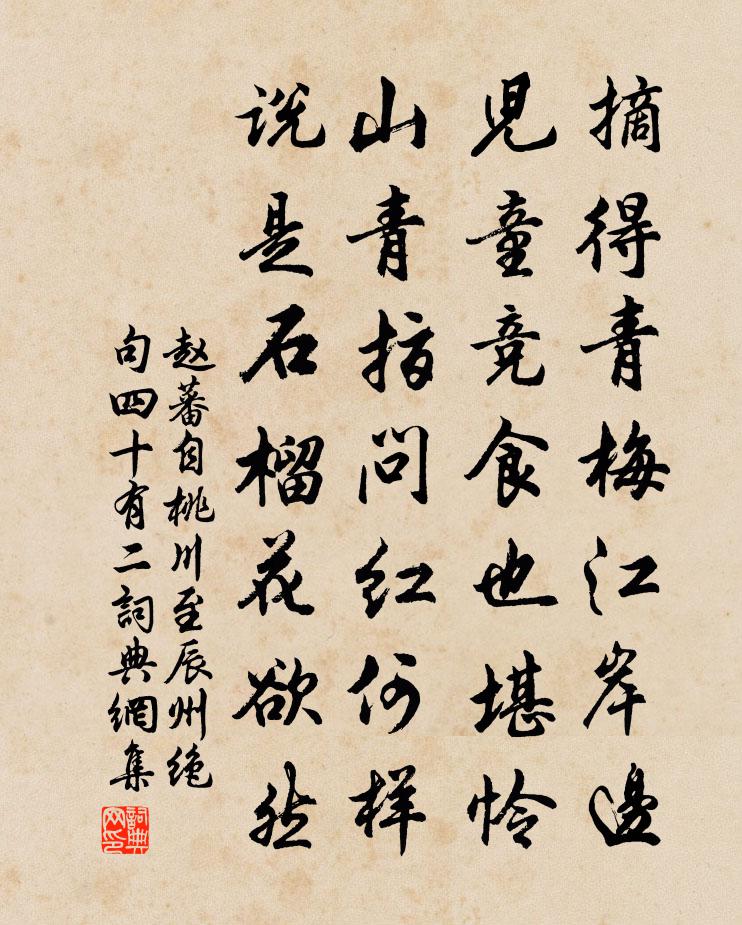 摘得青梅江岸邊
児童竞食也堪怜
山青指问红何样
说是石榴花欲然
赵蕃自桃川至辰州绝
句四十有二詞典網集
詞典网印